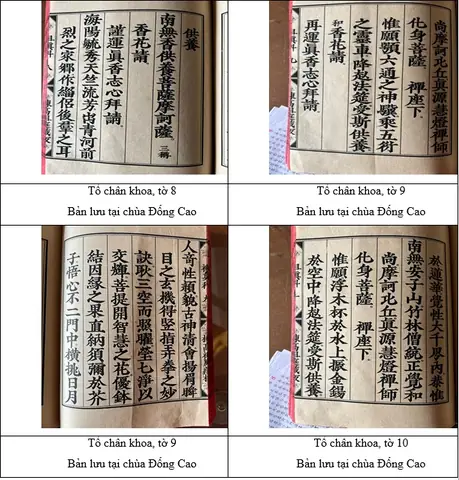 供養
南無香供養菩薩摩訶薩。三稱
香花請
謹運眞香志心拜請
海陽毓秀天竺流芳 青河前
烈之家鄉作緇侶後羣之耳
祖眞科 八
Tổ chân khoa, tờ 8
Bản lưu tại chùa Đống Cao
尚摩訶比丘眞源慧燈禪師
化身菩薩。禪座下。
惟願顎六通之神驥乘五衍
之靈車降赴法筵受斯供養
和香花請
再運眞香志心拜請
祖眞科 九
Tổ chân khoa, tờ 9
Bản lưu tại chùa Đống Cao
人奇性賴貌古神清會揚眉瞬
目之玄機得竪指弄拳之妙
訣耿三空而照曜瑩七淨以
交輝菩提開智慧之花優鉢
結因緣之果直納須彌於芥
子悟心不二門中橫挑日月
Tổ chân khoa, tờ 9
Bản lưu tại chùa Đống Cao
於蓮華覺性大千界內恭惟
南無安子山竹林僧統正覺和
尚摩訶比丘眞源慧燈禪師
化身菩薩。禪座下。
惟願浮木杯於水上振金錫
於空中降赴法筵受斯供養
Tổ chân khoa, tờ 10
Bản lưu tại chùa Đống Cao